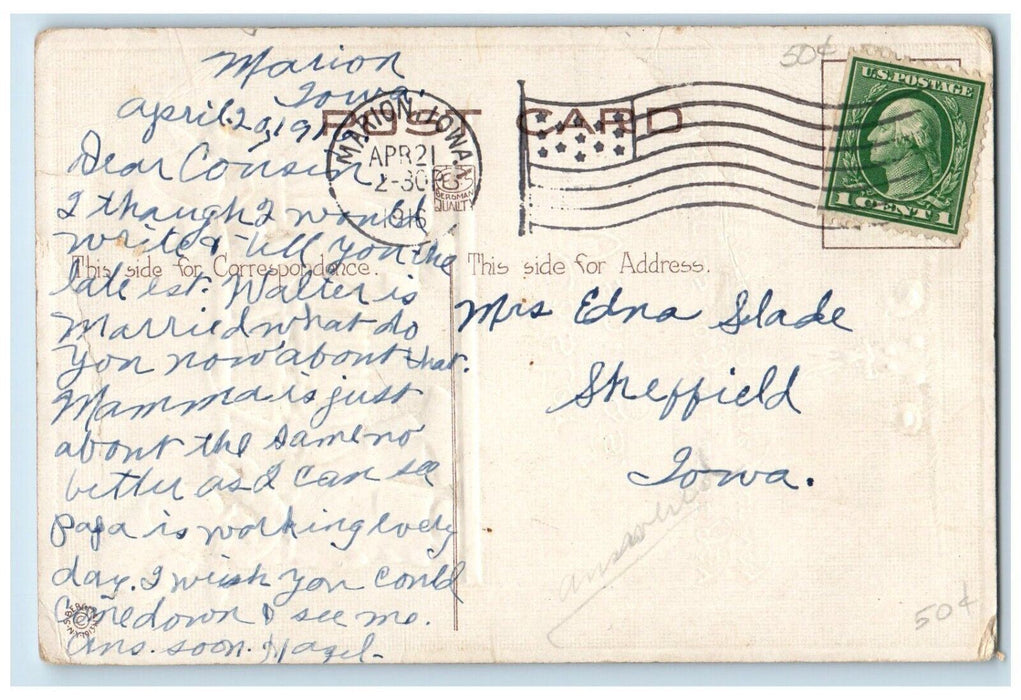 Marion
Iowa.
April 20, 191
POST CARD
MARION, IOWA
APR 21
2-30
1916
BERGMAN
QUALITY
U.S. POSTAGE
1 CENT 1
50¢
Dear Cousin
I though I would
write & till you the
This side for Correspondence.
late est. Walter is
Married what do
you now about that.
Mamma is just
about the same no
better as I can see
Papa is working every
day. I wish you could
Come down & see me.
Ans. soon. Hazel-
This side for Address.
Mrs Edna Slade
Sheffield
Iowa.
answered
50¢